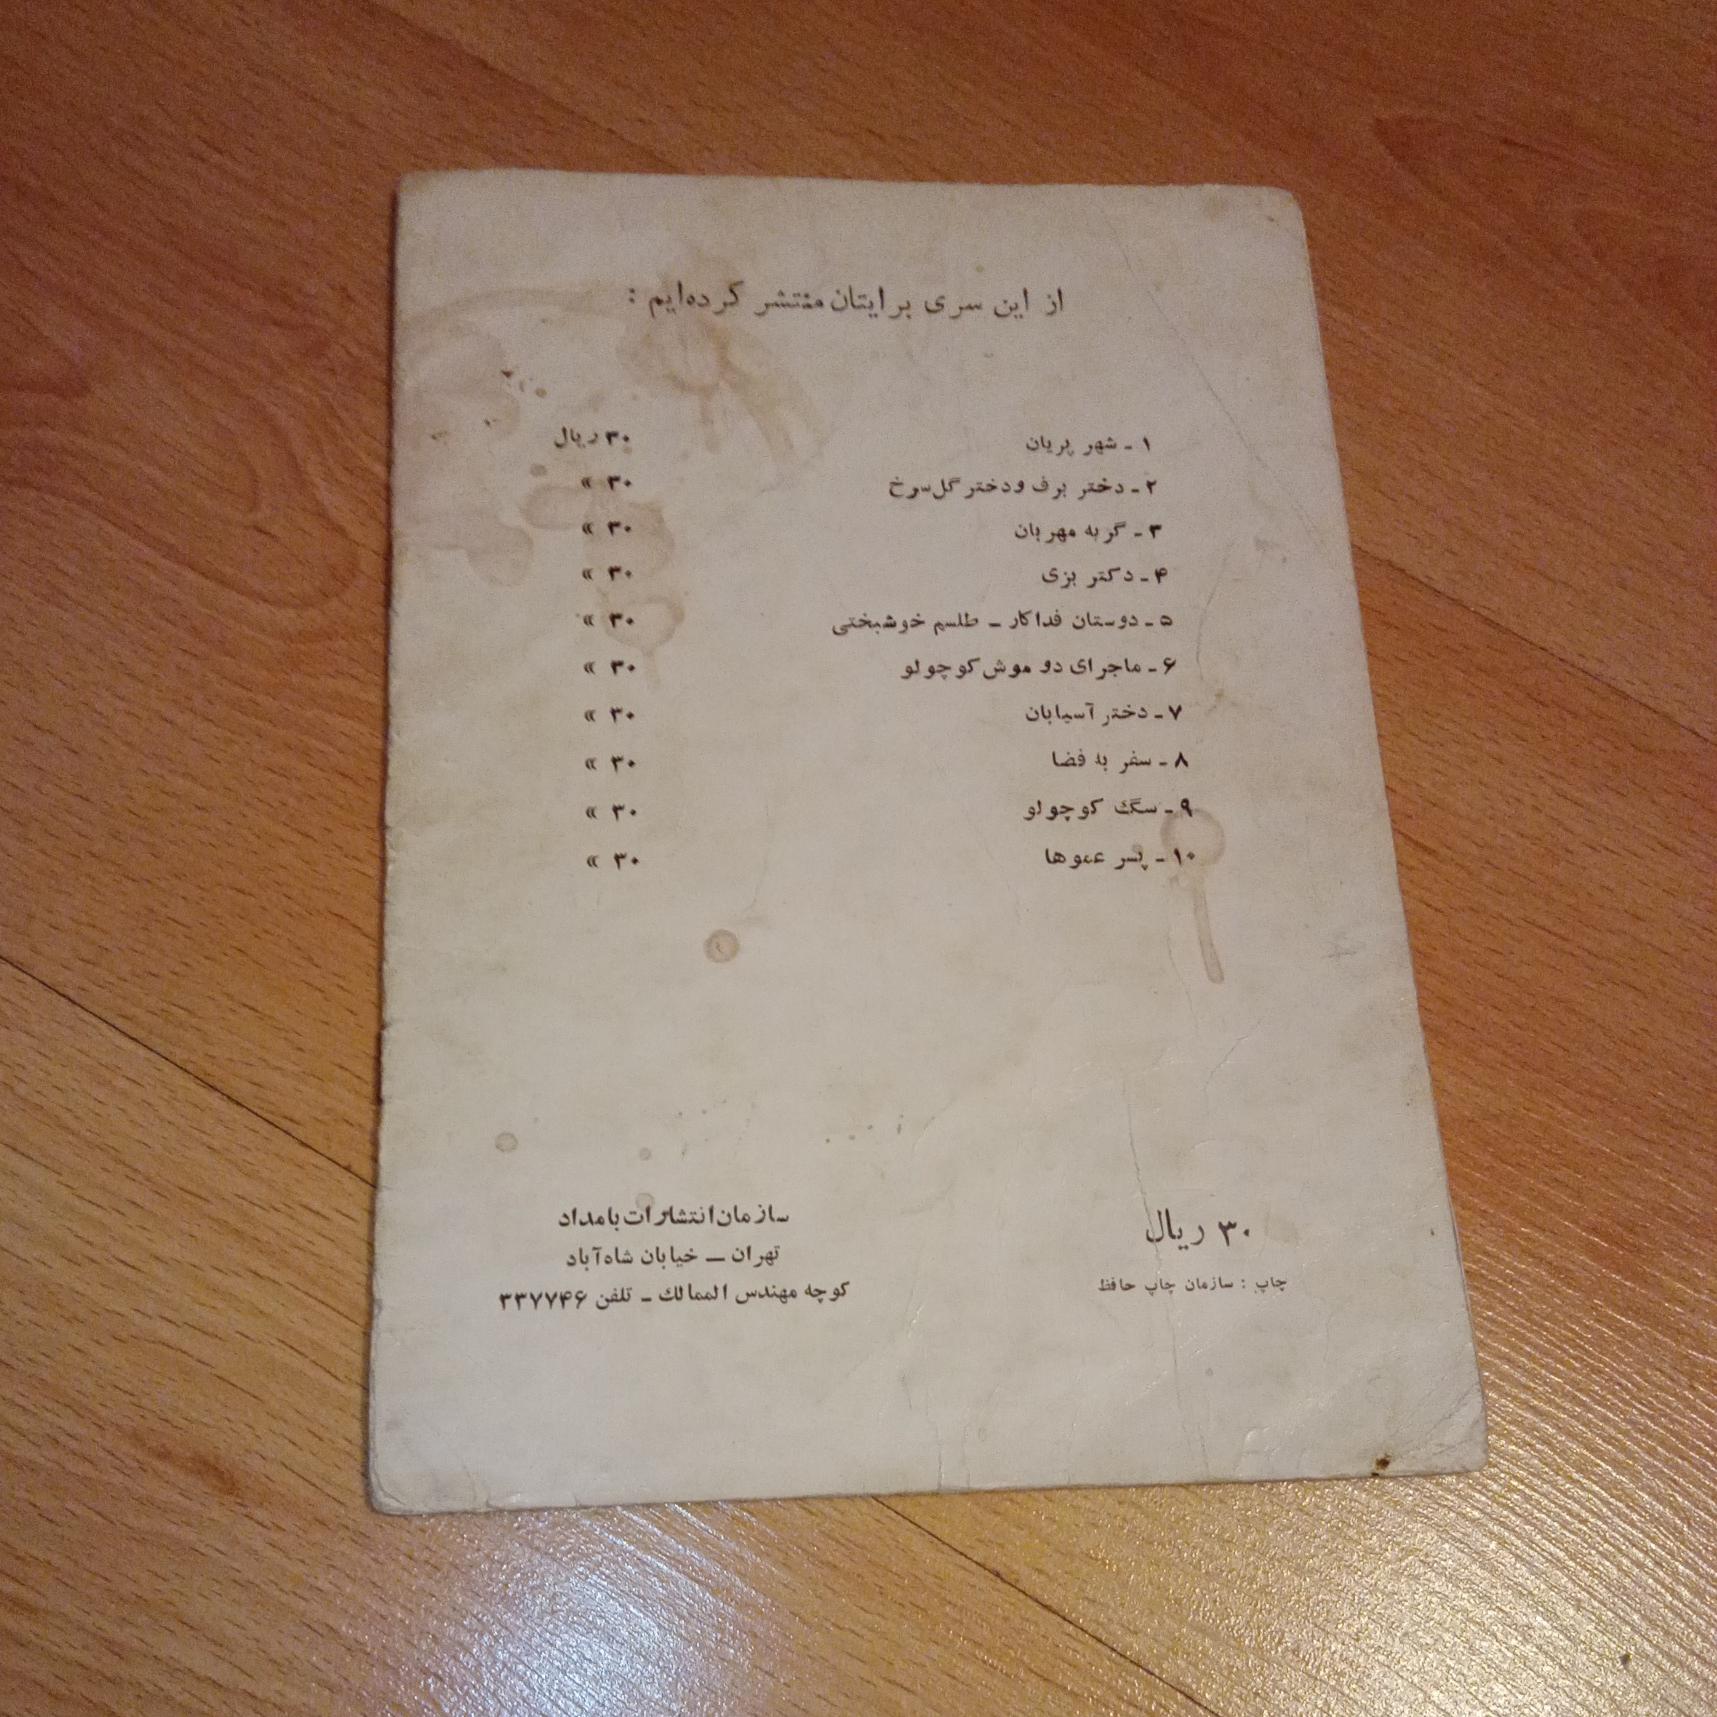 از این سری برایتان منتشر کرده‌ایم :
۱ - شهر پریان ۳۰ ریال
۲ - دختر برف و دختر گل‌سرخ ۳۰ »
۳ - گربه مهربان ۳۰ »
۴ - دکتر بزی ۳۰ »
۵ - دوستان فداکار - طلسم خوشبختی ۳۰ »
۶ - ماجرای دو موش کوچولو ۳۰ »
۷ - دختر آسیابان ۳۰ »
۸ - سفر به فضا ۳۰ »
۹ - سگ کوچولو ۳۰ »
۱۰ - پسر عموها ۳۰ »
۳۰ ریال
چاپ : سازمان چاپ حافظ
سازمان انتشارات بامداد
تهران — خیابان شاه‌آباد
کوچه مهندس الممالک - تلفن ۳۳۷۷۴۶